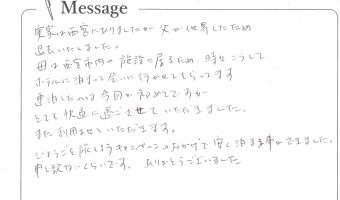 Message
実家は西宮にありましたが 父が他界したため
退去いたしました。
母は西宮市内の施設に居るため、時々こうして
ホテルに泊まって会いに行かせてもらってます。
連泊したのは今回が初めてですが
とても快適に過ごさせていただきました。
また利用させていただきます。
ひょうごを旅しようキャンペーンのおかげで安く泊まる事ができました。
申し訳ないくらいです。ありがとうございました